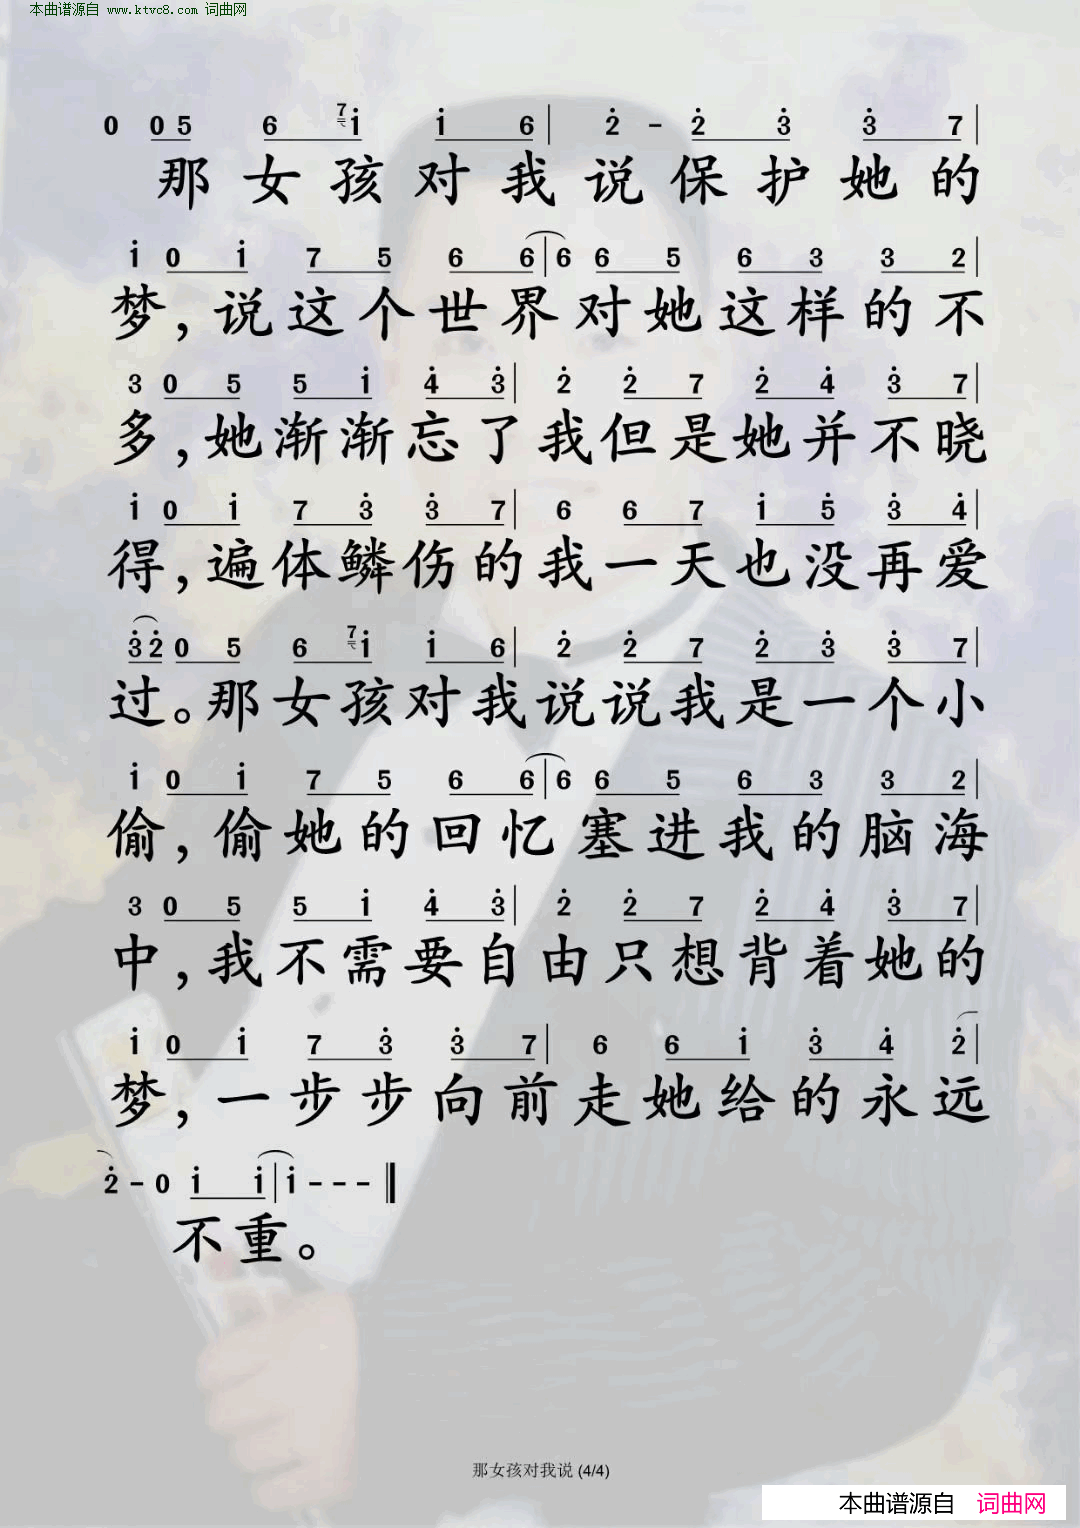 本曲谱源自 www.ktvc8.com 词曲网
0 0 5 6 7 i̇ i̇ 6 | 2̇ - 2̇ 3̇ 3̇ 7 |
那女孩对我说保护她的
i̇ 0 i̇ 7 5 6 6 | 6 6 5 6 3 3 2 |
梦,说这个世界对她这样的不
3 0 5 5 i̇ 4̇ 3̇ | 2̇ 2̇ 7 2̇ 4̇ 3̇ 7 |
多,她渐渐忘了我但是她并不晓
i̇ 0 i̇ 7 3̇ 3̇ 7 | 6 6 7 i̇ 5̇ 3̇ 4̇ |
得,遍体鳞伤的我一天也没再爱
3̇ 2̇ 0 5 6 7 i̇ i̇ 6 | 2̇ 2̇ 7 2̇ 3̇ 3̇ 7 |
过。那女孩对我说说我是一个小
i̇ 0 i̇ 7 5 6 6 | 6 6 5 6 3 3 2 |
偷,偷她的回忆塞进我的脑海
3 0 5 5 i̇ 4̇ 3̇ | 2̇ 2̇ 7 2̇ 4̇ 3̇ 7 |
中,我不需要自由只想背着她的
i̇ 0 i̇ 7 3̇ 3̇ 7 | 6 6 i̇ 3̇ 4̇ 2̇ |
梦,一步步向前走她给的永远
2̇ - 0 i̇ i̇ | i̇ - - - ‖
不重。
那女孩对我说 (4/4)
本曲谱源自 词曲网